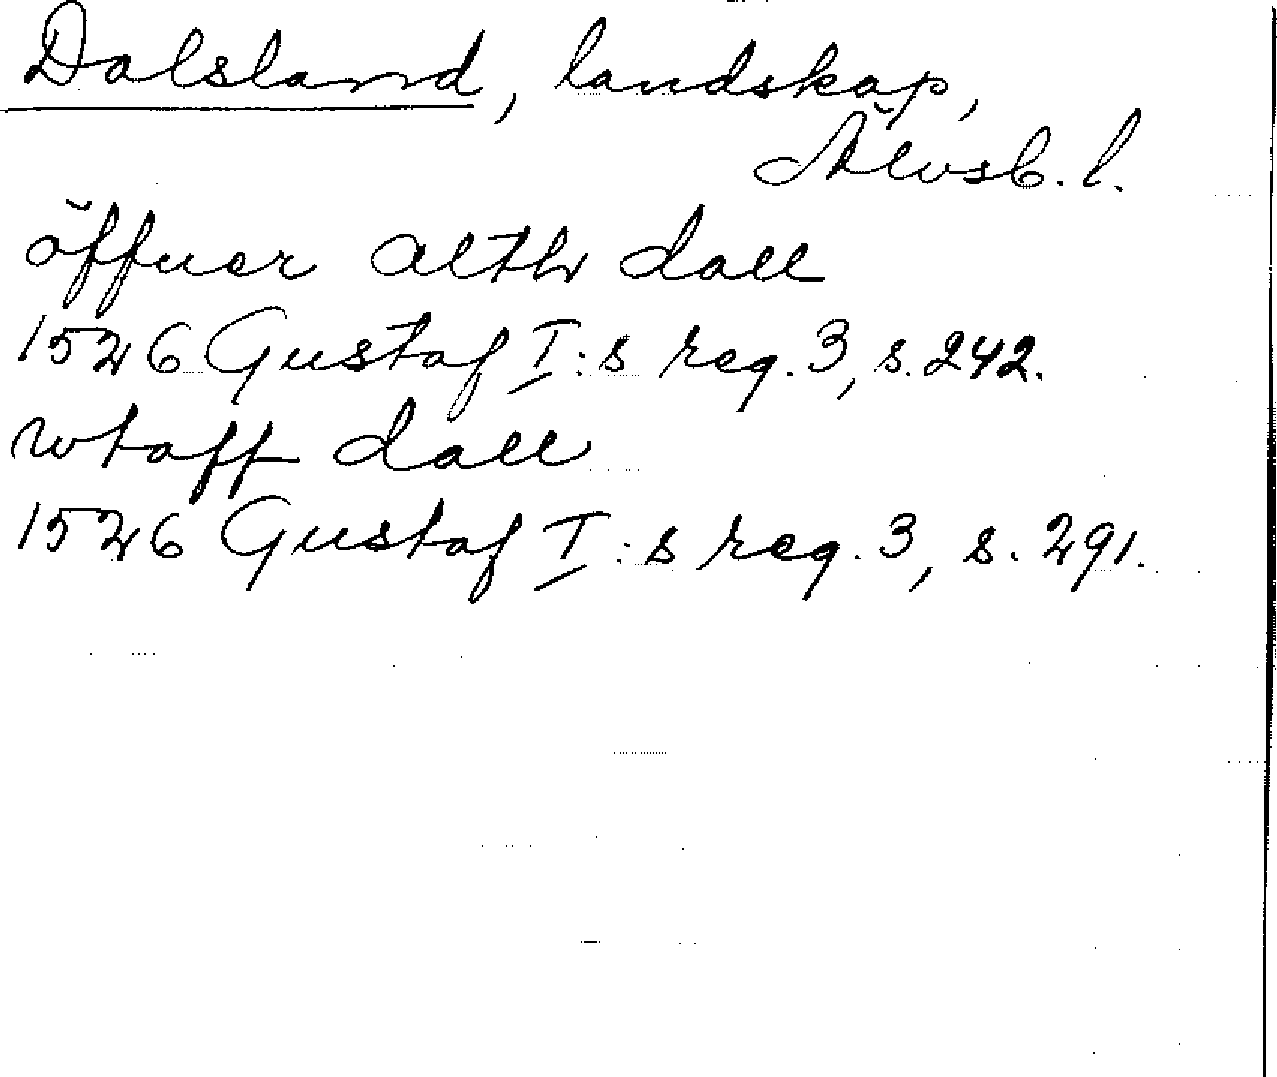 Dalsland, landskap,
Älvsb. l.
öffuer alth dall
1526 Gustaf I:s reg. 3, s. 242.
wtaff dall
1526 Gustaf I:s reg. 3, s. 291.